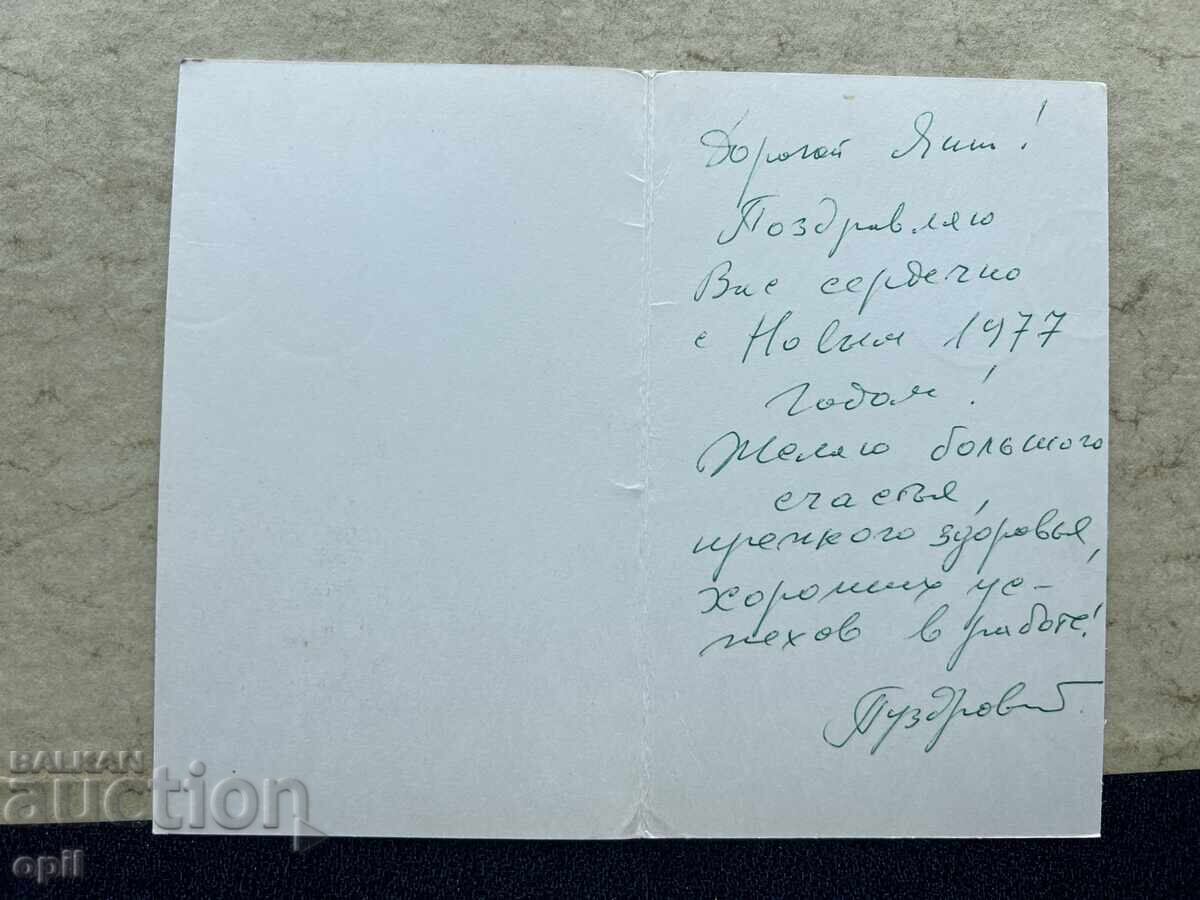 Дорогой Яни!
Поздравляю
Вас сердечно
с Новым 1977
годом!
Желаю большого
счастья,
крепкого здоровья,
хороших ус-
пехов в работе!
BALKAN
auction
opil